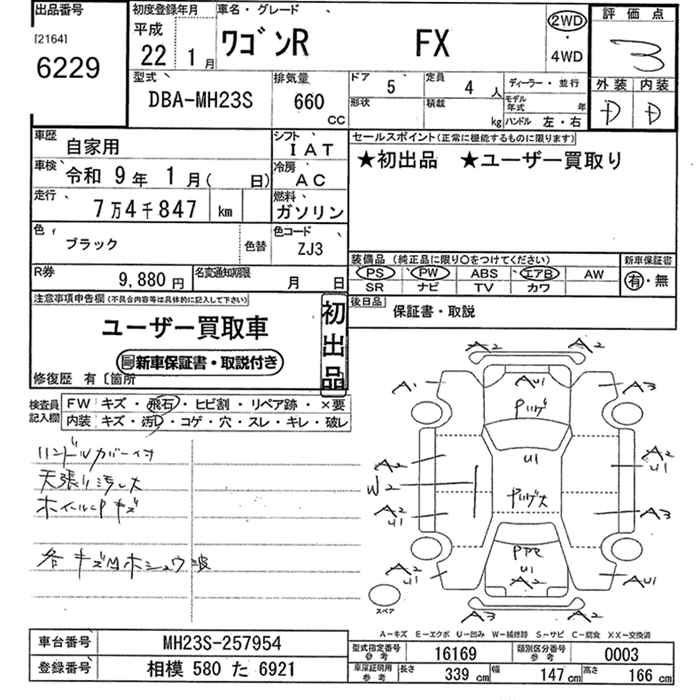 出品番号
[2164]
6229
初度登録年月
平成 年 月
22 1月
車名・グレード
ワゴンR FX
2WD
・
4WD
評価点
3
外装 内装
D D
型式
DBA-MH23S
排気量
660
CC
ドア
5
定員
4 人
ディーラー・並行
形状
積載
kg
モデル年式 年
ハンドル 左・右
車歴
自家用
シフト
IAT
車検
令和 9年 1月( 日)
冷房
AC
走行
7万4千847 km
燃料
ガソリン
色
ブラック
色替
色コード
ZJ3
R券
9,880円
名変通知期限
月 日
セールスポイント(正常に機能するものに限ります)
★初出品 ★ユーザー買取り
装備品 (純正品に限り○をつけてください)
PS PW ABS エアB AW
SR ナビ TV カワ
新車保証書
有・無
後日品
保証書・取説
注意事項申告欄(不具合内容等は具体的に記入して下さい)
ユーザー買取車
新車保証書・取説付き
初出品
修復歴 有〔箇所
検査員記入欄
FW キズ・飛石・ヒビ割・リペア跡・×要
内装 キズ・汚レ・コゲ・穴・スレ・キレ・破レ
ハンドルカバー付
天張り汚レ大
ホイールCPキズ
各キズ凹ホシュウ波
A2 A2
A1 AU1 A3
U1
A2 A2
U1
W2
A2
U1
A3
U1
A2
U1
AU1
A3 A2
スペア
A−キズ E−エクボ U−凹み W−補修跡 S−サビ C−腐食 XX−交換済
車台番号
MH23S-257954
登録番号
相模 580 た 6921
型式指定番号
参考
16169
類別区分番号
参考
0003
車庫証明用
参考
長さ
339 cm
幅
147 cm
高さ
166 cm